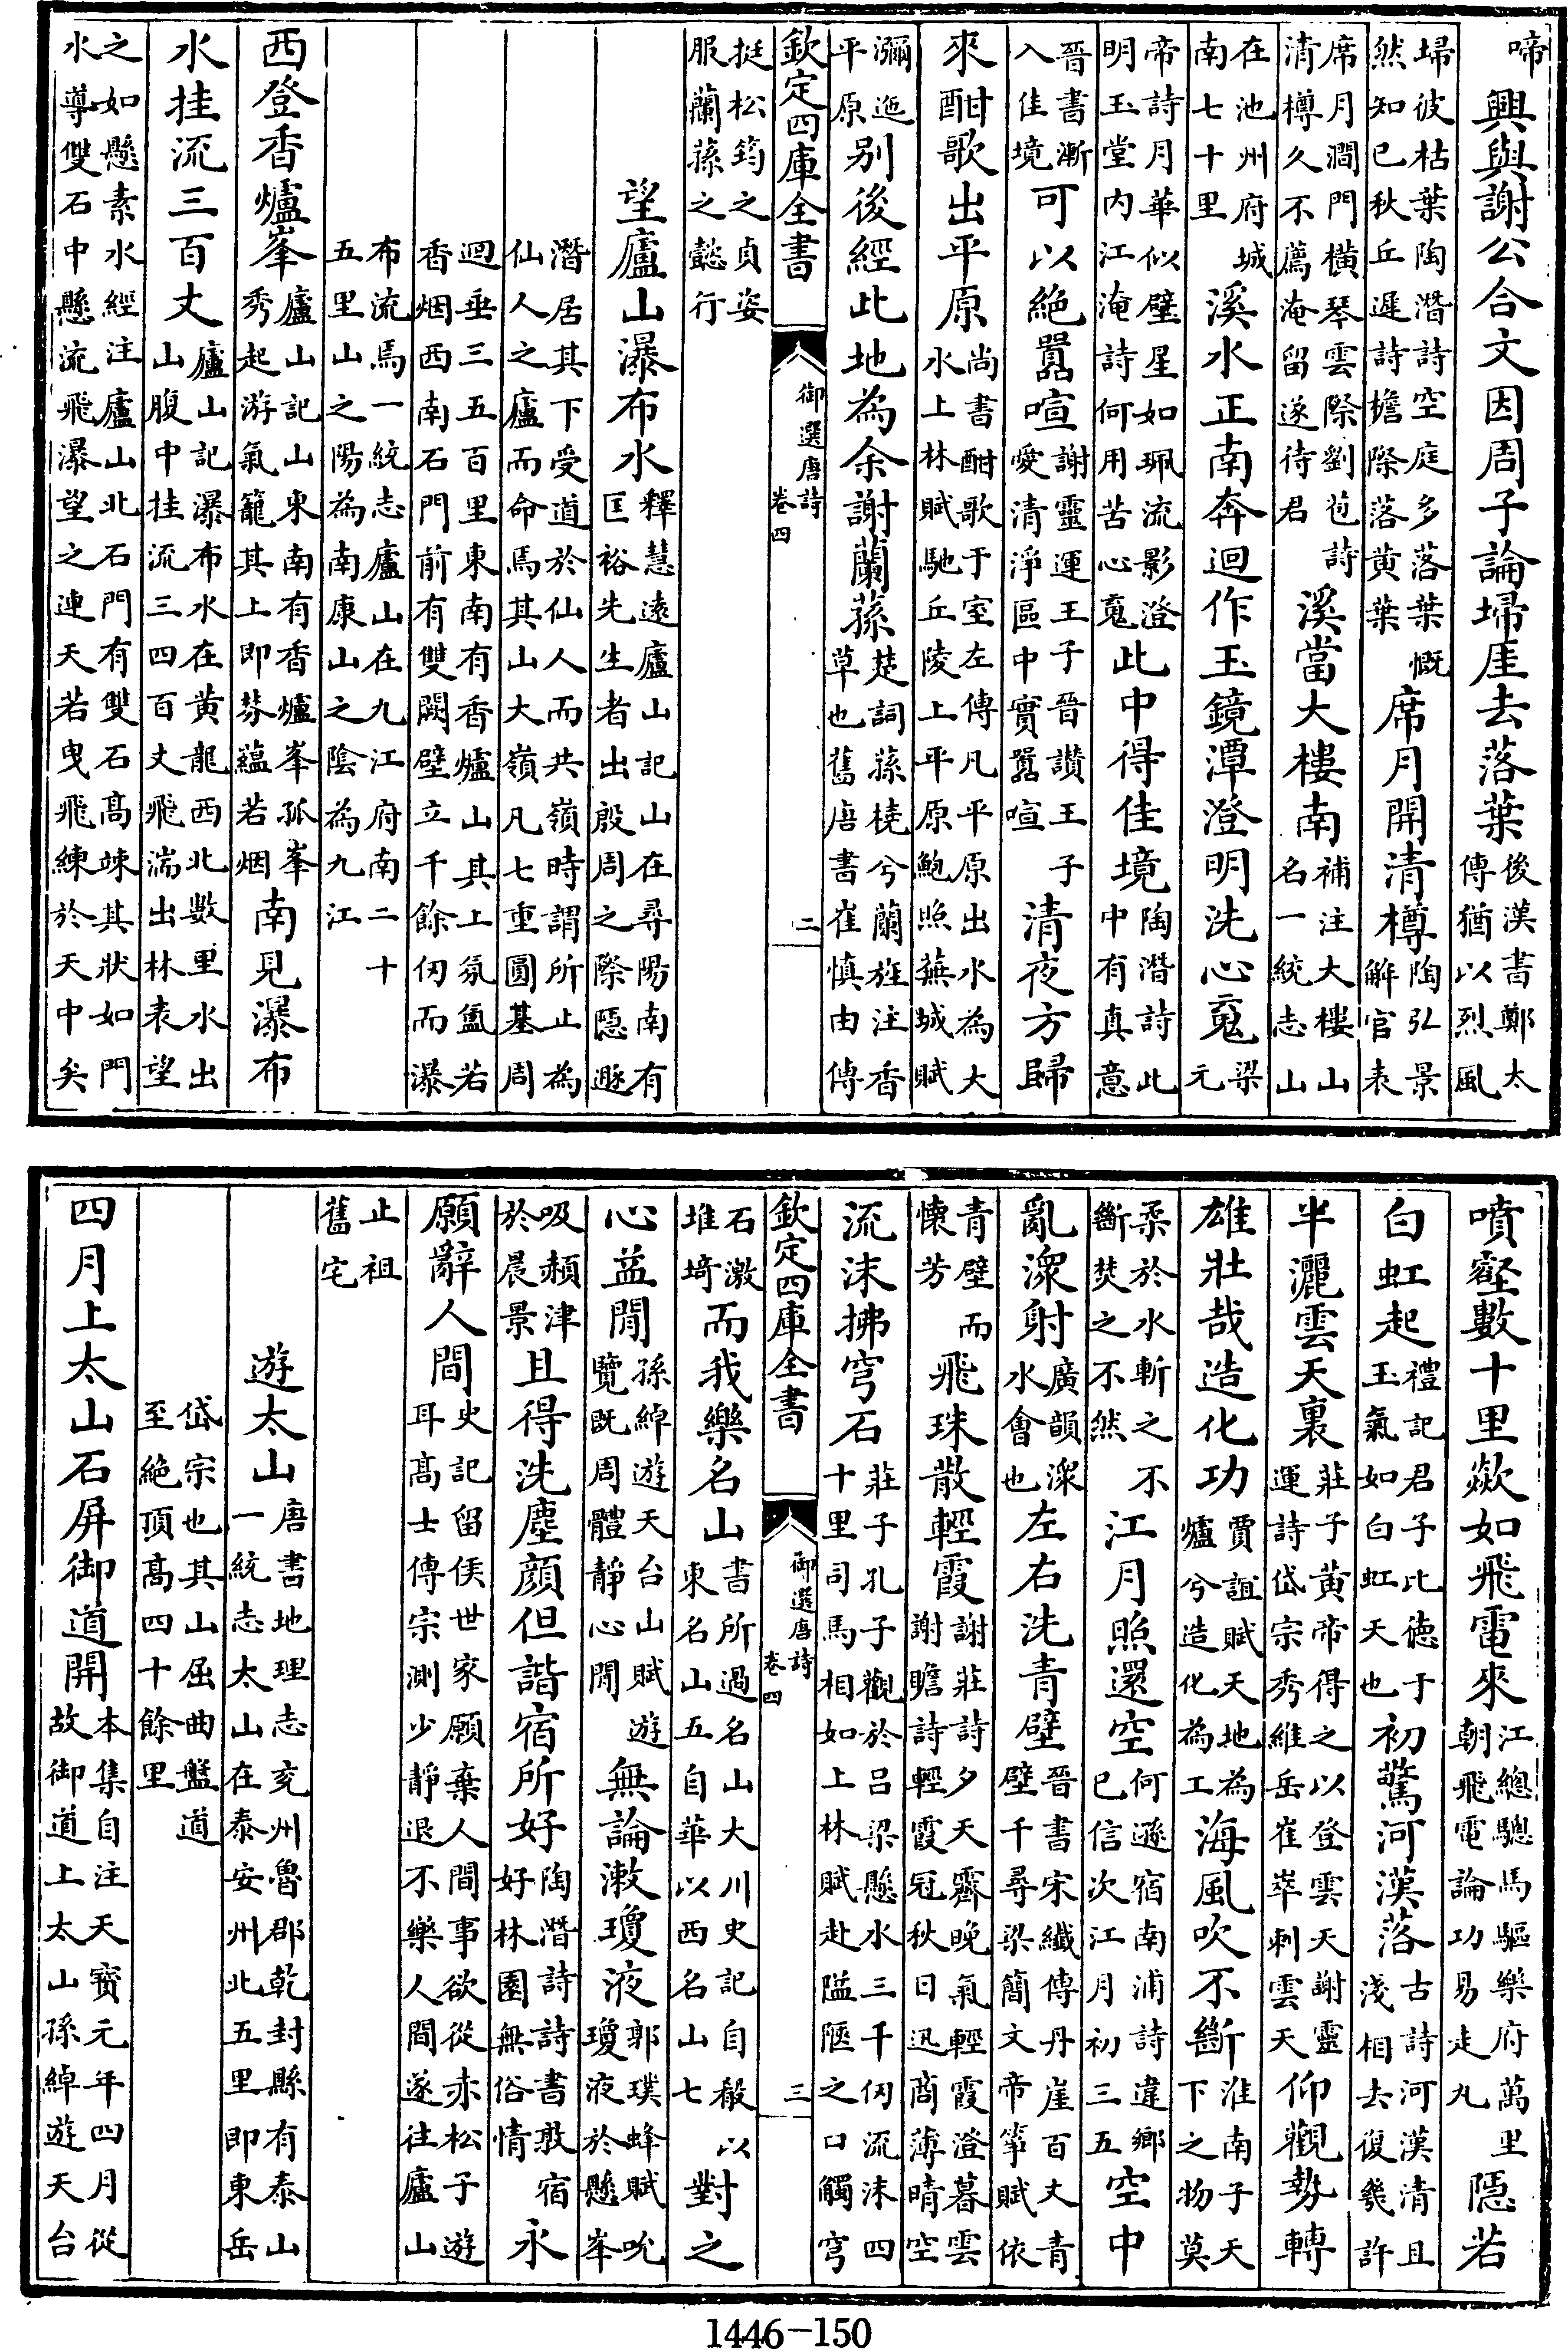 啼興與謝公合文因周子論埽厓去落葉後漢書鄭太傳猶以烈風
埽彼枯葉陶潛詩空庭多落葉慨然知已秋丘遲詩檐際落黄葉席月開清樽陶弘景解官表
席月澗門橫琴雲際劉苞詩清樽久不薦淹留遂待君溪當大樓南補注大樓山名一統志山
在池州府城南七十里溪水正南奔迴作玉鏡潭澄明洗心䰟梁元
帝詩月華似璧星如珮流影澄明玉堂内江淹詩何用苦心䰟此中得佳境陶潛詩此中有真意
晉書漸入佳境可以絶囂喧謝靈運王子晉讚王子愛清淨區中實囂喧清夜方歸
來酣歌出平原尚書酣歌于室左傳凡平原出水為大水上林賦馳丘陵上平原鮑照蕪城賦
瀰迤平原别後經此地為余謝蘭蓀楚詞蓀橈兮蘭旌注香草也舊唐書崔慎由傳
欽定四庫全書 御選唐詩 卷四 二
挺松筠之貞姿服蘭蓀之懿行
望廬山瀑布水釋慧遠廬山記山在尋陽南有匡裕先生者出殷周之際隱遯
潛居其下受道於仙人而共嶺時謂所止為仙人之廬而命焉其山大嶺凡七重圓基周
迴垂三五百里東南有香爐山其上氛氲若香烟西南石門前有雙闕壁立千餘仞而瀑
布流焉一統志廬山在九江府南二十五里山之陽為南康山之陰為九江
西登香爐峯廬山記山東南有香爐峯孤峯秀起游氣籠其上即芬蘊若烟南見瀑布
水挂流三百丈廬山記瀑布水在黄龍西北數里水出山腹中挂流三四百丈飛湍出林表望
之如懸素水經注廬山北石門有雙石高竦其狀如門水導雙石中懸流飛瀑望之連天若曳飛練於天中矣
噴壑數十里歘如飛電來江總驄馬驅樂府萬里朝飛電論功易走丸隱若
白虹起禮記君子比徳于玉氣如白虹天也初驚河漢落古詩河漢清且淺相去復幾許
半灑雲天裏莊子黄帝得之以登雲天謝靈運詩岱宗秀維岳崔崒刺雲天仰觀勢轉
雄壯哉造化功賈誼賦天地為爐兮造化為工海風吹不斷淮南子天下之物莫
柔於水斬之不斷焚之不然江月照還空何遜宿南浦詩違鄉已信次江月初三五空中
亂潀射廣韻潀水會也左右洗青壁晉書宋纖傳丹崖百丈青壁千尋梁簡文帝箏賦依
青壁而懷芳飛珠散輕霞謝莊詩夕天霽晚氣輕霞澄暮雲謝瞻詩輕霞冠秋日迅商薄晴空
流沫拂穹石莊子孔子觀於吕梁懸水三千仞流沫四十里司馬相如上林賦赴隘陿之口觸穹
欽定四庫全書 御選唐詩 卷四 三
石激堆埼而我樂名山書所過名山大川史記自殽以東名山五自華以西名山七對之
心益閒孫綽遊天台山賦遊覽既周體靜心閒無論漱瓊液郭璞蜂賦吮瓊液於懸峯
吸赬津於晨景且得洗塵顔但諧宿所好陶潛詩詩書敦宿好林園無俗情永
願辭人間史記留侯世家願棄人間事欲從赤松子遊耳高士傳宗測少靜退不樂人間遂往廬山
止祖舊宅
遊太山唐書地理志兖州魯郡乾封縣有泰山一統志太山在泰安州北五里即東岳
岱宗也其山屈曲盤道至絶頂高四十餘里
四月上太山石屏御道開本集自注天寶元年四月從故御道上太山孫綽遊天台
1446-150